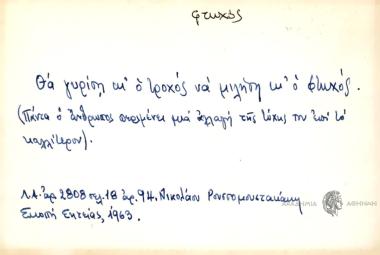 φτωχός
Θά γυρίση κι' ὁ τροχός νά μιλήση κι' ὁ φτωχός.
(Πάντα ὁ ἄνθρωπος περιμένει μιά ἀλλαγή τῆς τύχης του ἐπί τό
καλλίτερον).
Λ.Α. ἀρ. 2808 σελ. 18 ἀρ. 94. Νικολάου Ρουσσομουστακάκη
Σητείας, 1963.
ΑΚΑΔΗΜΙΑ ΑΘΗΝΩΝ